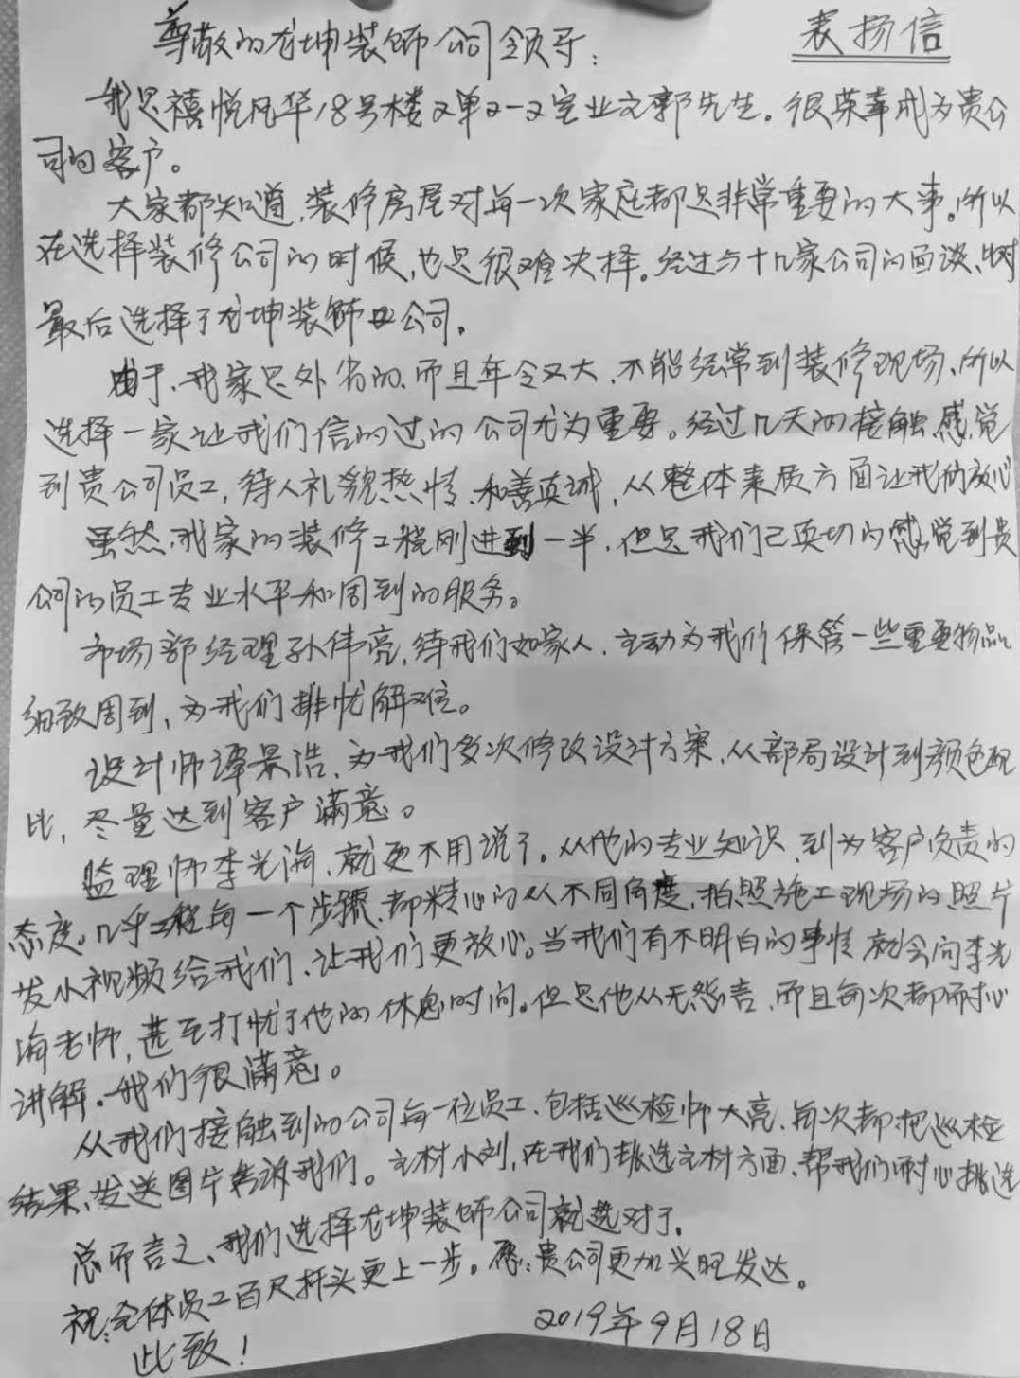 表扬信
尊敬的龙坤装饰公司领导:
我是禧悦风华18号楼2单2-2室业主郭先生。很荣幸成为贵公
司的客户。
大家都知道,装修房屋对每一次家庭都是非常重要的大事。所以
在选择装修公司的时候,也是很难决择。经过与十几家公司的面谈、
最后选择了龙坤装饰公司。
由于、我家是外省的、而且年令又大、不能经常到装修现场、所以
选择一家让我们信的过的公司尤为重要。经过几天的接触,感觉
到贵公司员工,待人礼貌热情、和善真诚,从整体素质方面让我们放心
虽然,我家的装修工程刚进到一半,但是我们已真切的感觉到贵
公司的员工专业水平和周到的服务。
市场部经理孙伟亮,待我们如家人,主动为我们保管一些重要物品
细致周到、为我们排忧解难。
设计师谭景浩、为我们多次修改设计方案,从部局设计到颜色配
比,尽量达到客户满意。
监理师李光海、就更不用说了。从他的专业知识、到为客户负责的
态度。几乎工程每一个步骤、都精心的从不同角度,拍照施工现场的照片
发小视频给我们、让我们更放心。当我们有不明白的事情就会问李光
海老师,甚至打忧了他的休息时间。但是他从无怨言、而且每次都耐心
讲解。我们很满意。
从我们接触到的公司每一位员工、包括巡检师大亮、每次都把巡检
结果、发送图片告诉我们。主材小刘,在我们挑选主材方面、帮我们耐心挑选
总而言之、我们选择龙坤装饰公司就选对了。
祝:全体员工百尺杆头更上一步。愿:贵公司更加兴旺发达。
此致!
2019年9月18日